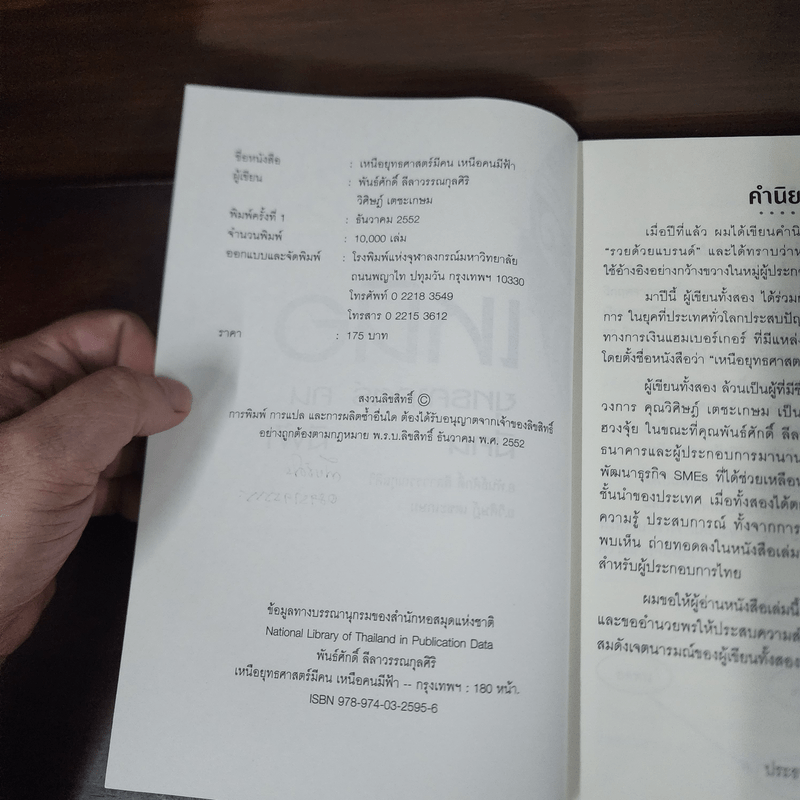 ชื่อหนังสือ : เหนือยุทธศาสตร์มีคน เหนือคนมีฟ้า
ผู้เขียน : พันธ์ศักดิ์ ลีลาวรรณกุลศิริ
วิศิษฏ์ เตชะเกษม
พิมพ์ครั้งที่ 1 : ธันวาคม 2552
จำนวนพิมพ์ : 10,000 เล่ม
ออกแบบและจัดพิมพ์ : โรงพิมพ์แห่งจุฬาลงกรณ์มหาวิทยาลัย
ถนนพญาไท ปทุมวัน กรุงเทพฯ 10330
โทรศัพท์ 0 2218 3549
โทรสาร 0 2215 3612
ราคา : 175 บาท
สงวนลิขสิทธิ์ ©
การพิมพ์ การแปล และการผลิตซ้ำอื่นใด ต้องได้รับอนุญาตจากเจ้าของลิขสิทธิ์
อย่างถูกต้องตามกฎหมาย พ.ร.บ.ลิขสิทธิ์ ธันวาคม พ.ศ. 2552
ข้อมูลทางบรรณานุกรมของสำนักหอสมุดแห่งชาติ
National Library of Thailand in Publication Data
พันธ์ศักดิ์ ลีลาวรรณกุลศิริ
เหนือยุทธศาสตร์มีคน เหนือคนมีฟ้า -- กรุงเทพฯ : 180 หน้า.
ISBN 978-974-03-2595-6
คำนิย
เมื่อปีที่แล้ว ผมได้เขียนคำนิ
"รวยด้วยแบรนด์" และได้ทราบว่าห
ใช้อ้างอิงอย่างกว้างขวางในหมู่ผู้ประก
มาปีนี้ ผู้เขียนทั้งสอง ได้ร่วม
การ ในยุคที่ประเทศทั่วโลกประสบปัญ
ทางการเงินแฮมเบอร์เกอร์ ที่มีแหล่ง
โดยตั้งชื่อหนังสือว่า "เหนือยุทธศาสต
ผู้เขียนทั้งสอง ล้วนเป็นผู้ที่มีชื
วงการ คุณวิศิษฏ์ เตชะเกษม เป็น
ฮวงจุ้ย ในขณะที่คุณพันธ์ศักดิ์ ลีล
ธนาคารและผู้ประกอบการมานาน
พัฒนาธุรกิจ SMEs ที่ได้ช่วยเหลือ
ชั้นนำของประเทศ เมื่อทั้งสองได้ต
ความรู้ ประสบการณ์ ทั้งจากการ
พบเห็น ถ่ายทอดลงในหนังสือเล่ม
สำหรับผู้ประกอบการไทย
ผมขอให้ผู้อ่านหนังสือเล่มนี้
และขออำนวยพรให้ประสบความสำ
สมดังเจตนารมณ์ของผู้เขียนทั้งสอง
ประธ